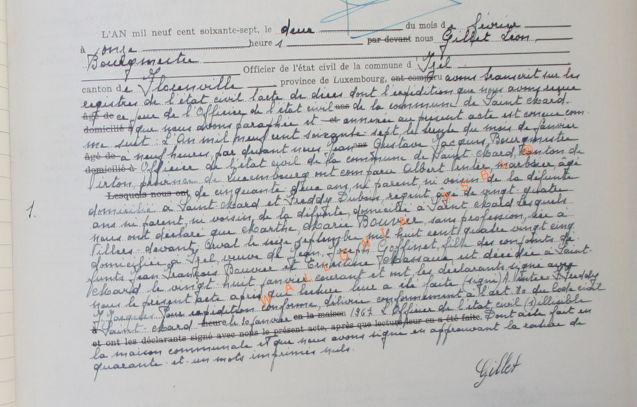 L'AN mil neuf cent soixante-sept, le deux du mois de février
à onze heures par devant nous Gillet Léon
Bourgmestre Officier de l'état civil de la commune d'Izel
canton de Florenville province de Luxembourg, ont comparu avons transcrit sur les
registres de l'état civil l'acte de décès dont l'expédition que nous avons reçue
âgé de ce jour de l'Officier de l'état civil de la commune de Saint-Mard
domicilié à que nous avons paraphée et annexée au présent acte est conçue com-
me suit: L'An mil neuf cent soixante sept, le du mois de janvier
âgé de à neuf heures, par devant nous Gustave Jacques, Bourgmestre
domicilié à Officier de l'état civil de la commune de Saint-Mard, canton de
Virton, province de Luxembourg ont comparu Albert marbrier âgé
Lesquels nous ont de cinquante deux ans, ni parent, ni voisin de la défunte
1. domicilié à Saint-Mard et Freddy Dubus régent âgé de vingt quatre
ans ni parent, ni voisin de la défunte, domicilié à lesquels
nous ont déclaré que Marthe, Marie Bouvier sans profession, née à
Villers-devant-Orval le seize septembre mil huit cent quatre vingt cinq
domiciliée à Izel, veuve de Jean, Joseph Goffinet, fille des conjoints dé-
funts Jean François Bouvier et est décédée à Saint-
Mard le vingt huit janvier courant et ont, les déclarants signé avec
nous le présent acte après que lecture leur a été faite (signé) Freddy
Jacques. Pour expédition conforme, délivrée conformément à l'art. 80 du code civil
à Saint-Mard heure le janvier en la maison 1967. L'Officier de l'état civil (s) illisible
et ont les déclarants signé avec nous le présent acte, après que lecture leur en a été faite. Dont acte fait en
la maison communale et que nous avons signé en approuvant la rature de
quarante et un mots imprimés nuls.
Gillet